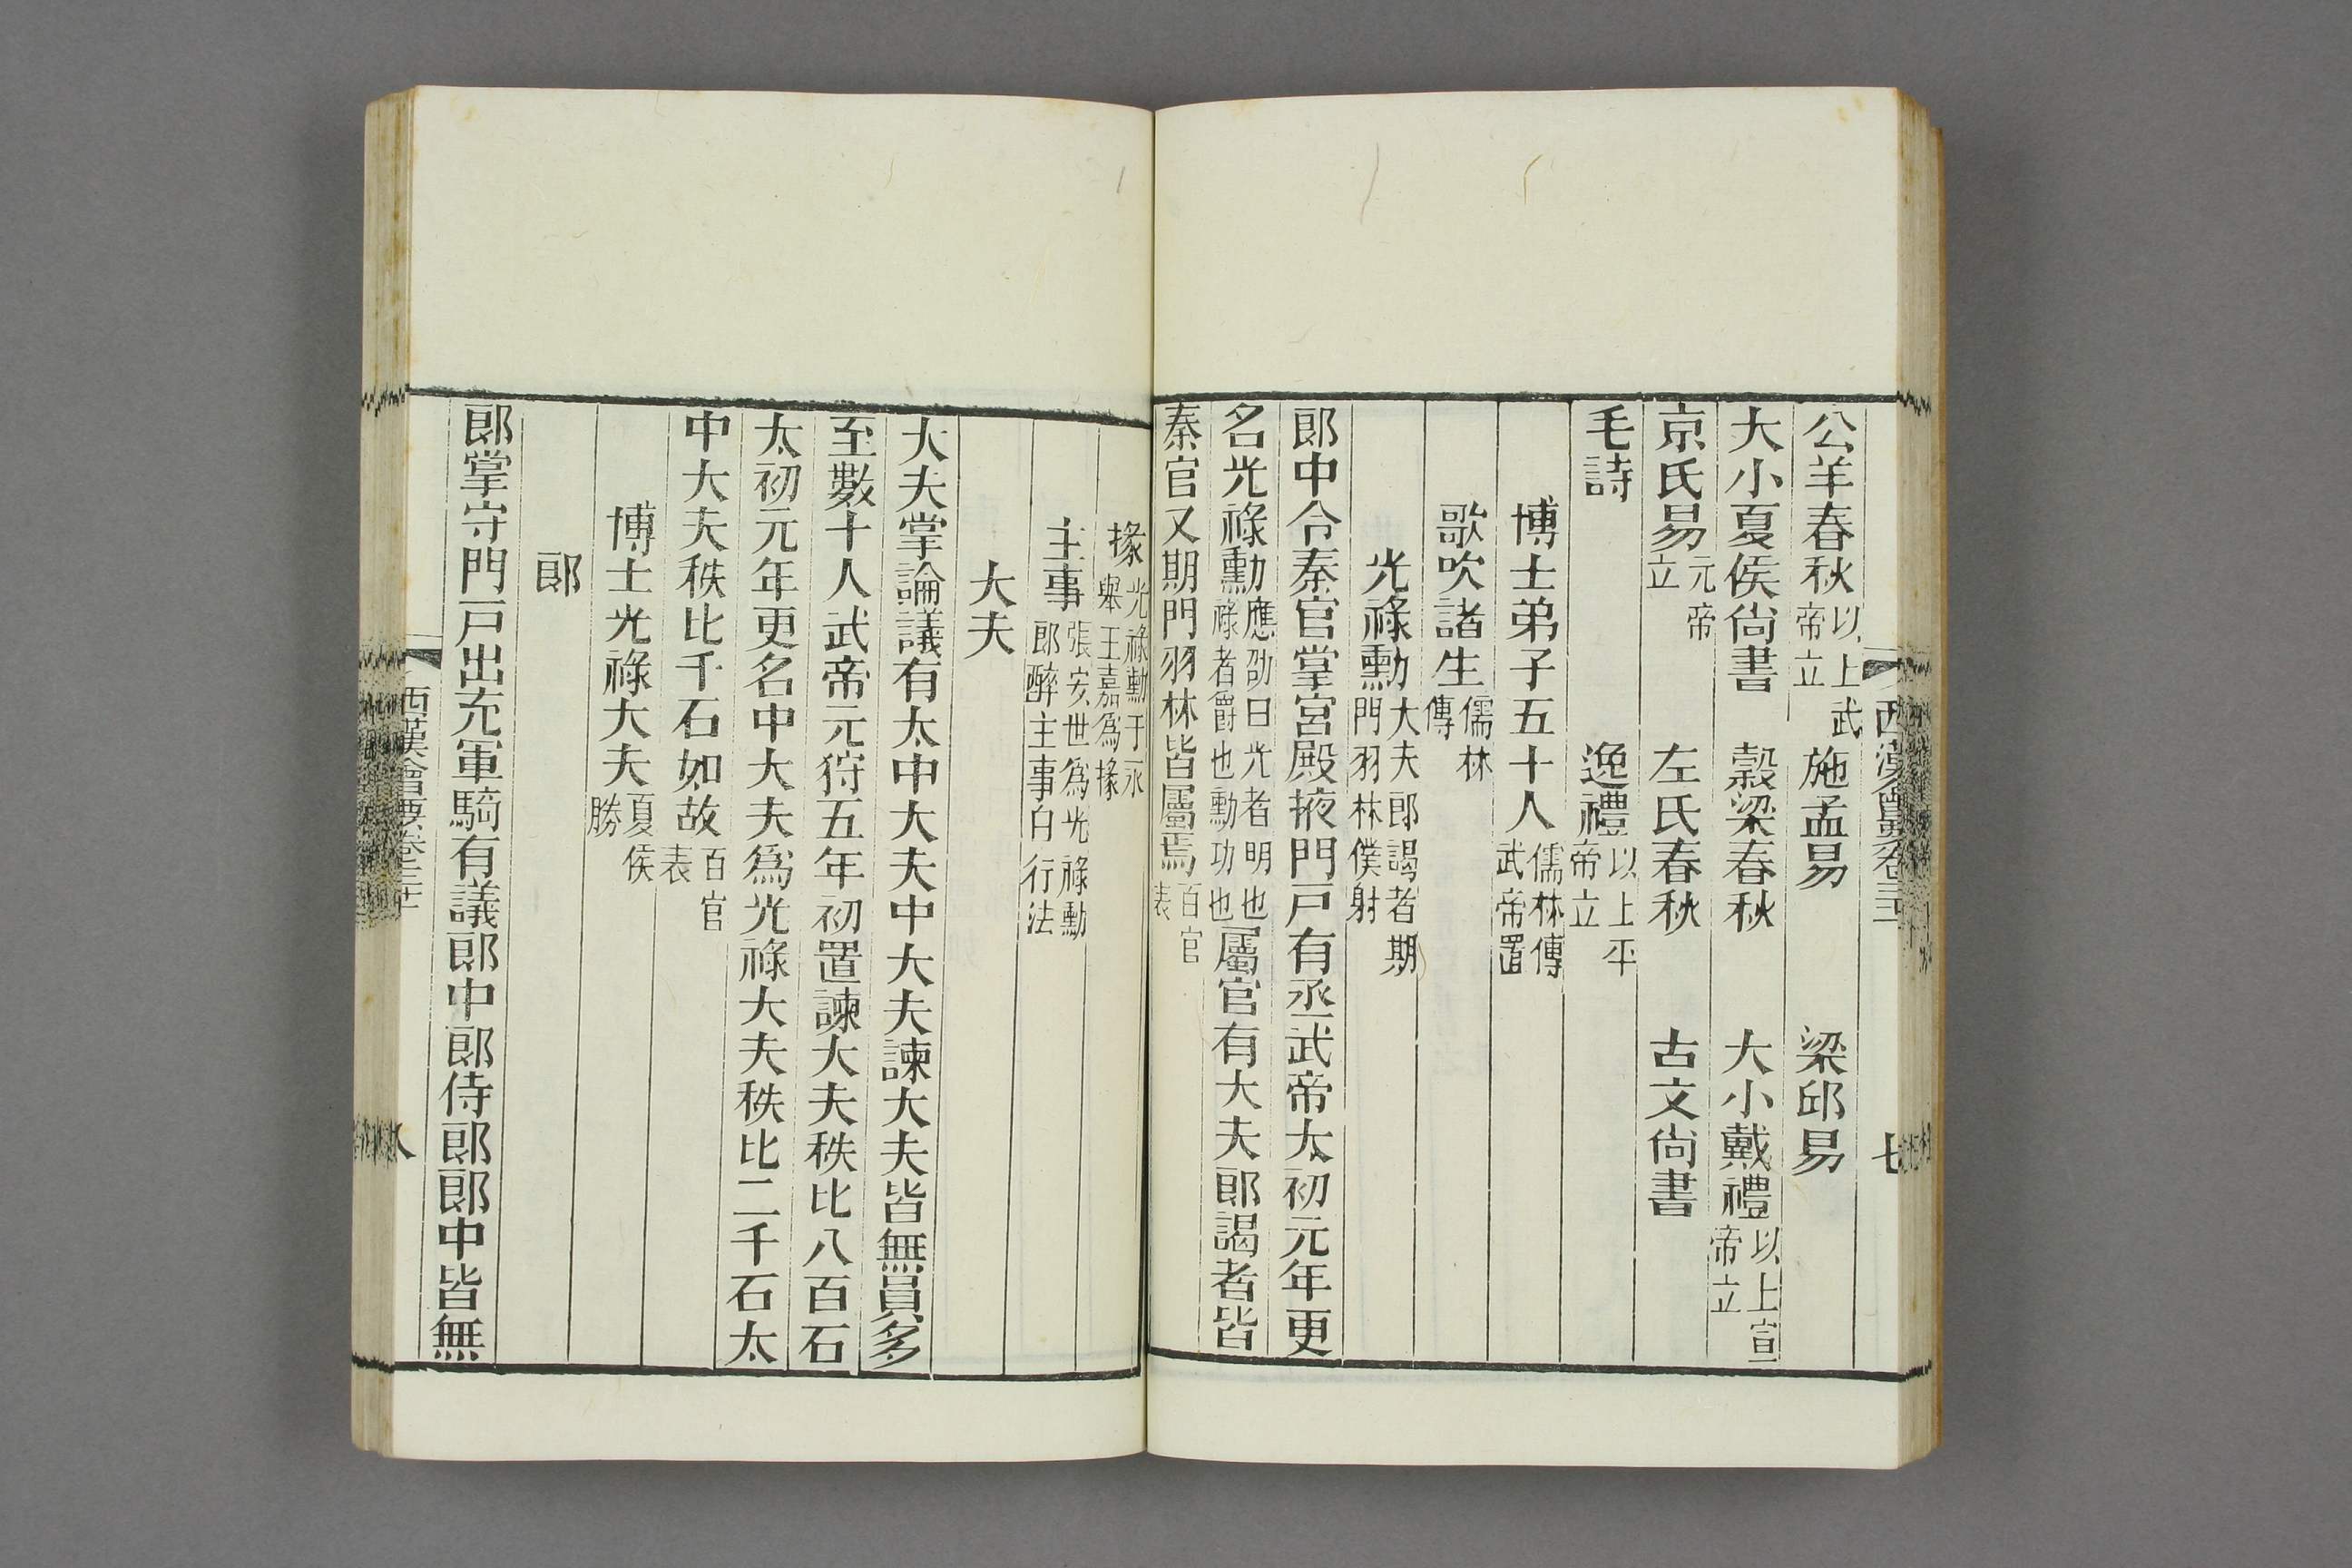 公羊春秋以上武帝立 施孟易 梁邱易
大小夏侯尙書 穀梁春秋 大小戴禮以上宣帝立
京氏易元帝立 左氏春秋 古文尙書
毛詩 逸禮以上平帝立
博士弟子五十人儒林傳武帝置
歌吹諸生儒林傳
光祿勳大夫郎謁者期門羽林僕射
郎中令秦官掌宮殿掖門戸有丞武帝太初元年更
名光祿勳應劭曰光者明也祿者爵也勳功也屬官有大夫郎謁者皆
秦官又期門羽林皆屬焉百官表
掾光祿勳于永舉王嘉爲掾
主事張安世爲光祿勳郎醉主事白行法
大夫
大夫掌論議有太中大夫中大夫諫大夫皆無員多
至數十人武帝元狩五年初置諫大夫秩比八百石
太初元年更名中大夫爲光祿大夫秩比二千石太
中大夫秩比千石如故百官表
博士光祿大夫夏侯勝
郎
郎掌守門戸出充車騎有議郎中郎侍郎郎中皆無
西漢會要卷三十一
八